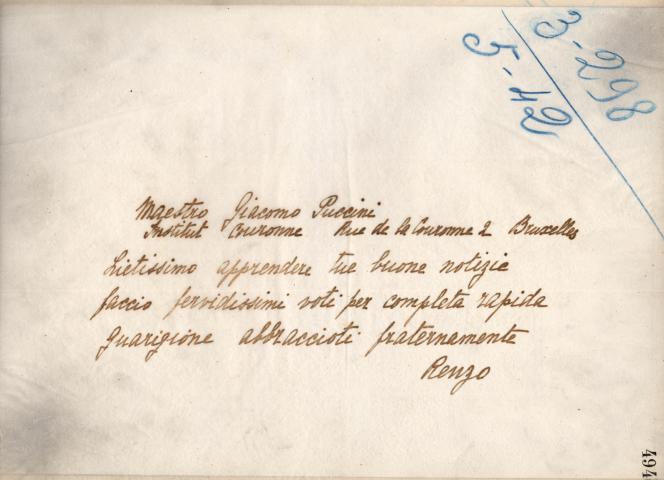 3-298
5-42
Maestro Giacomo Puccini
Institut Couronne Rue de la Couronne 2 Bruxelles
Lietissimo apprendere tue buone notizie
faccio fervidissimi voti per completa rapida
guarigione abbraccioti fraternamente
Renzo
464